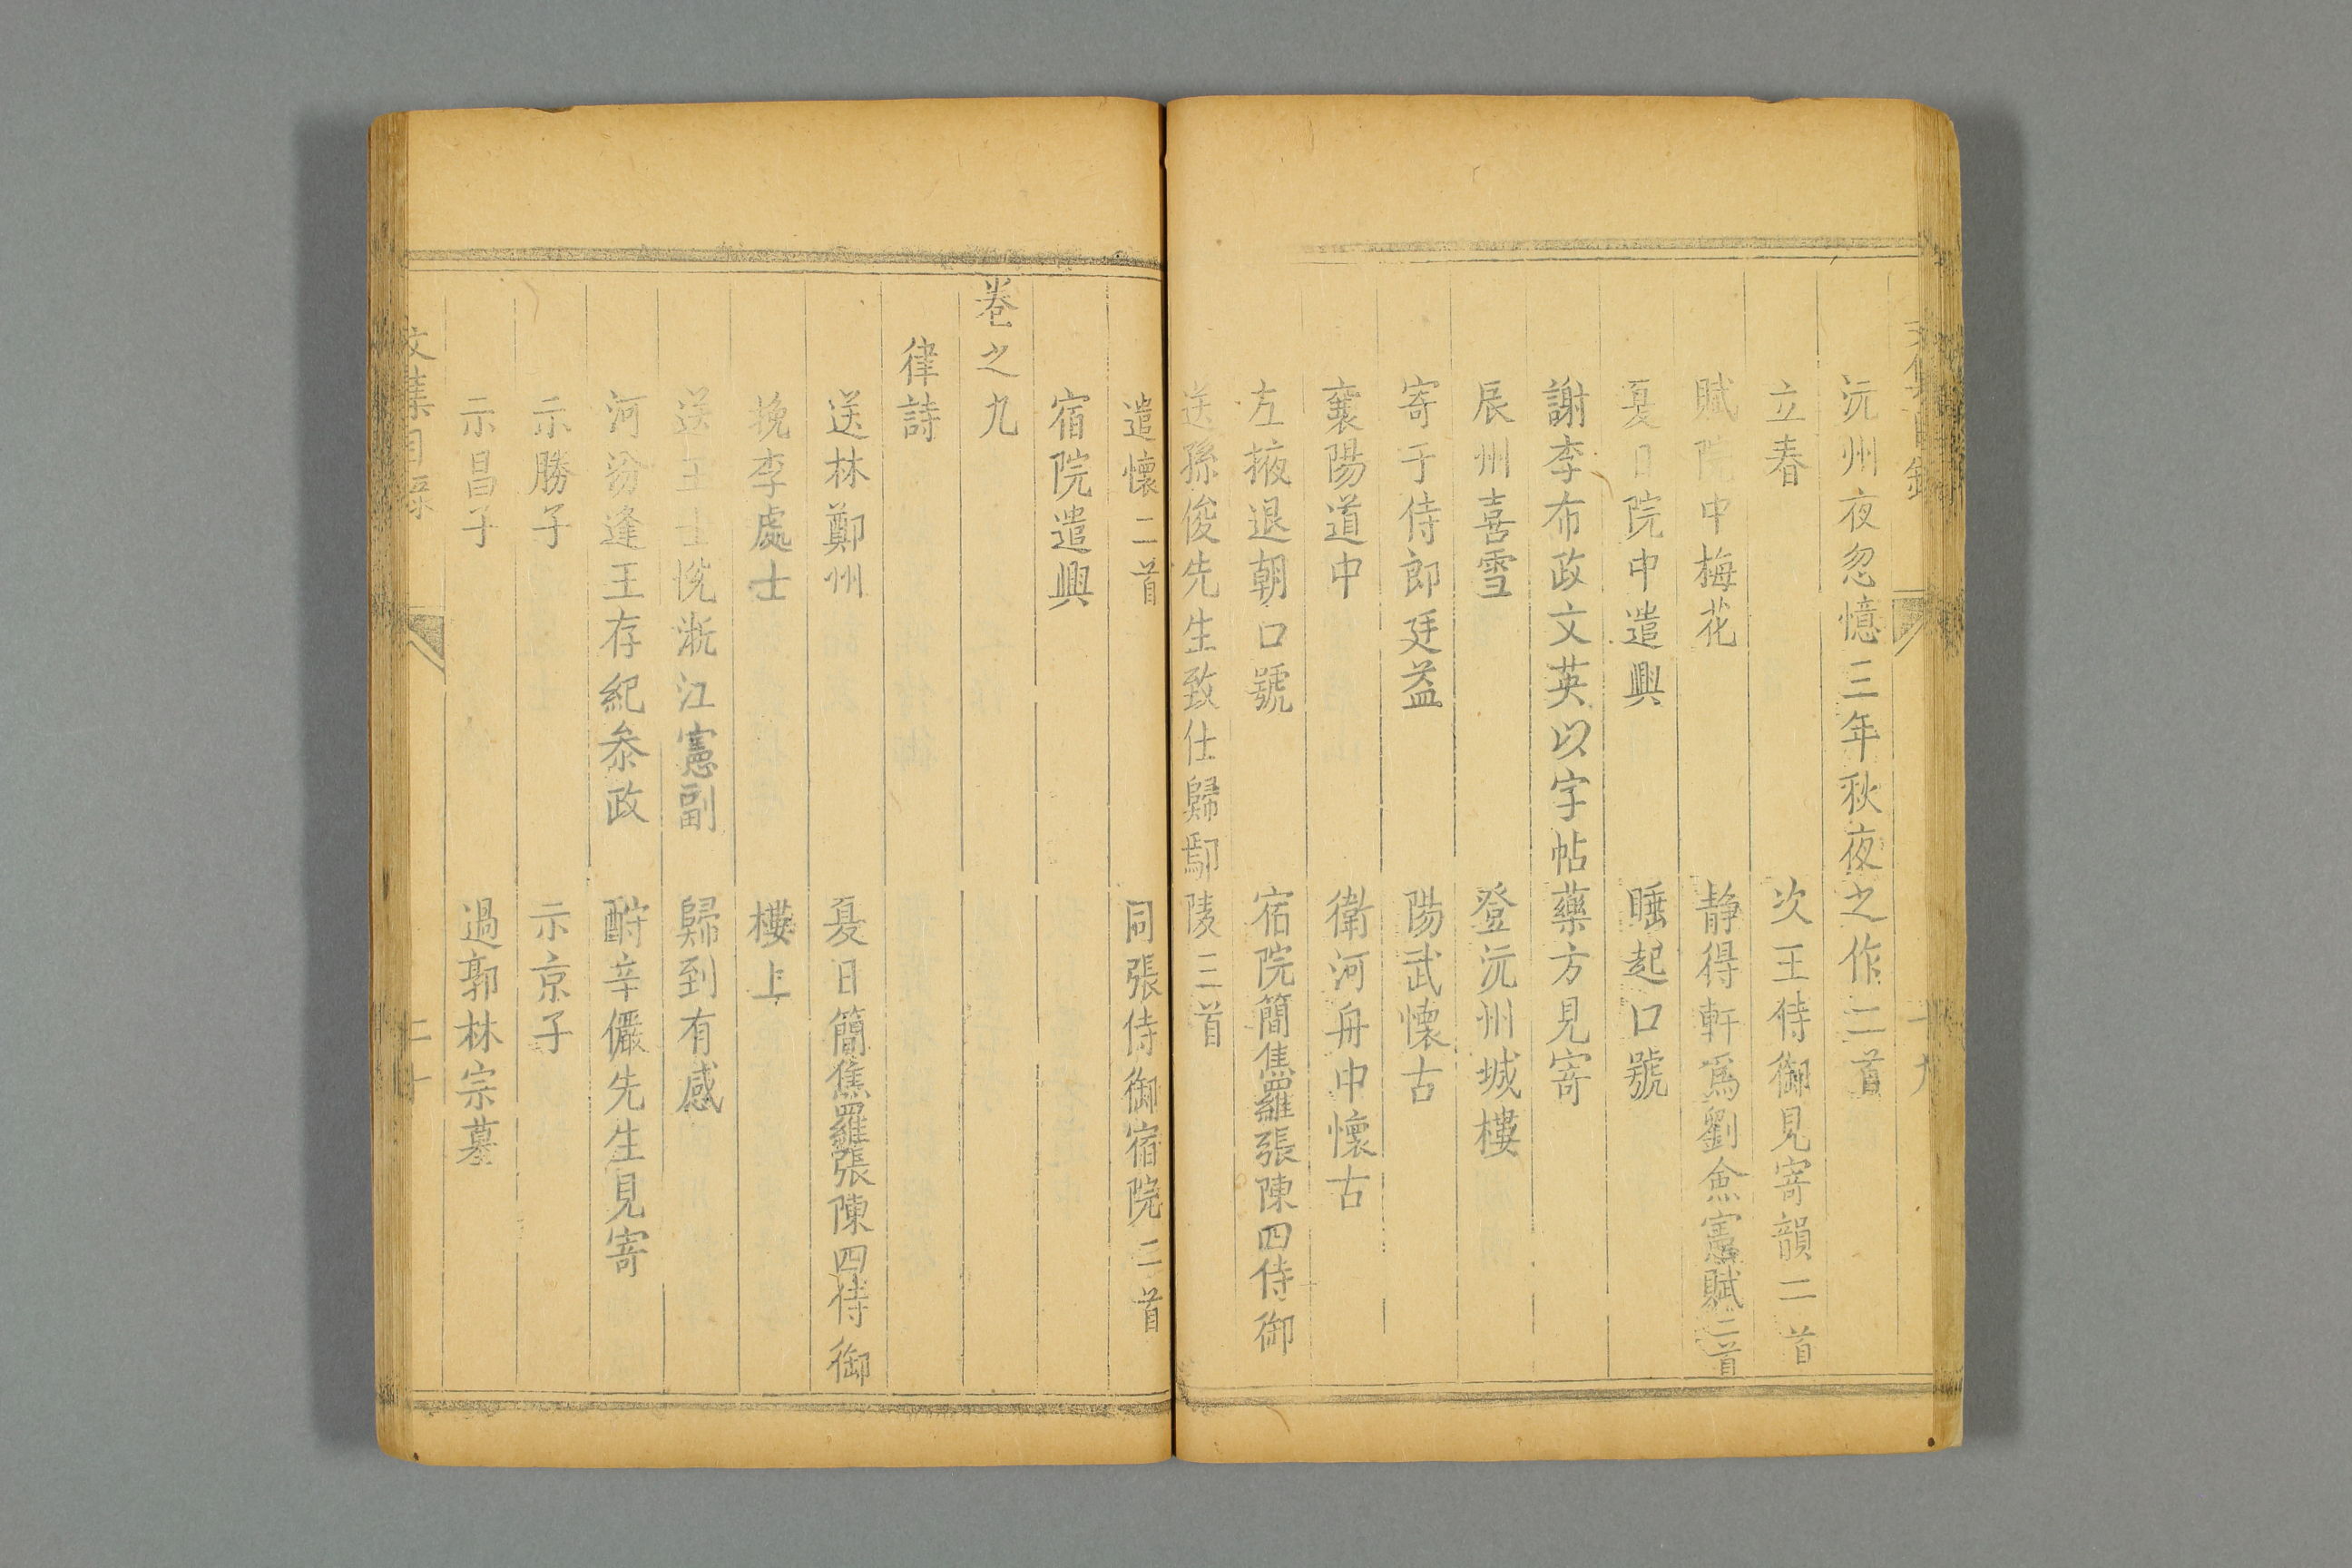 文集目錄
十九
沅州夜忽憶三年秋夜之作二首
立春　次王侍御見寄韻二首
賦院中梅花　静得軒爲劉僉憲賦二首
夏日院中遣興　睡起口號
謝李布政文英以字帖藥方見寄
辰州喜雪　登沅州城樓
寄于侍郎廷益　陽武懷古
襄陽道中　衛河舟中懷古
左掖退朝口號　宿院簡焦羅張陳四侍御
送孫俊先生致仕歸鄢陵三首
遣懷二首　同張侍御宿院二首
宿院遣興
卷之九
律詩
送林鄭州　夏日簡焦羅張陳四侍御
挽李處士　樓上
送王士悅浙江憲副　歸到有感
河汾逢王存紀叅政　酧辛儼先生見寄
示勝子　示京子
示昌子　過郭林宗墓
文集目錄
二十